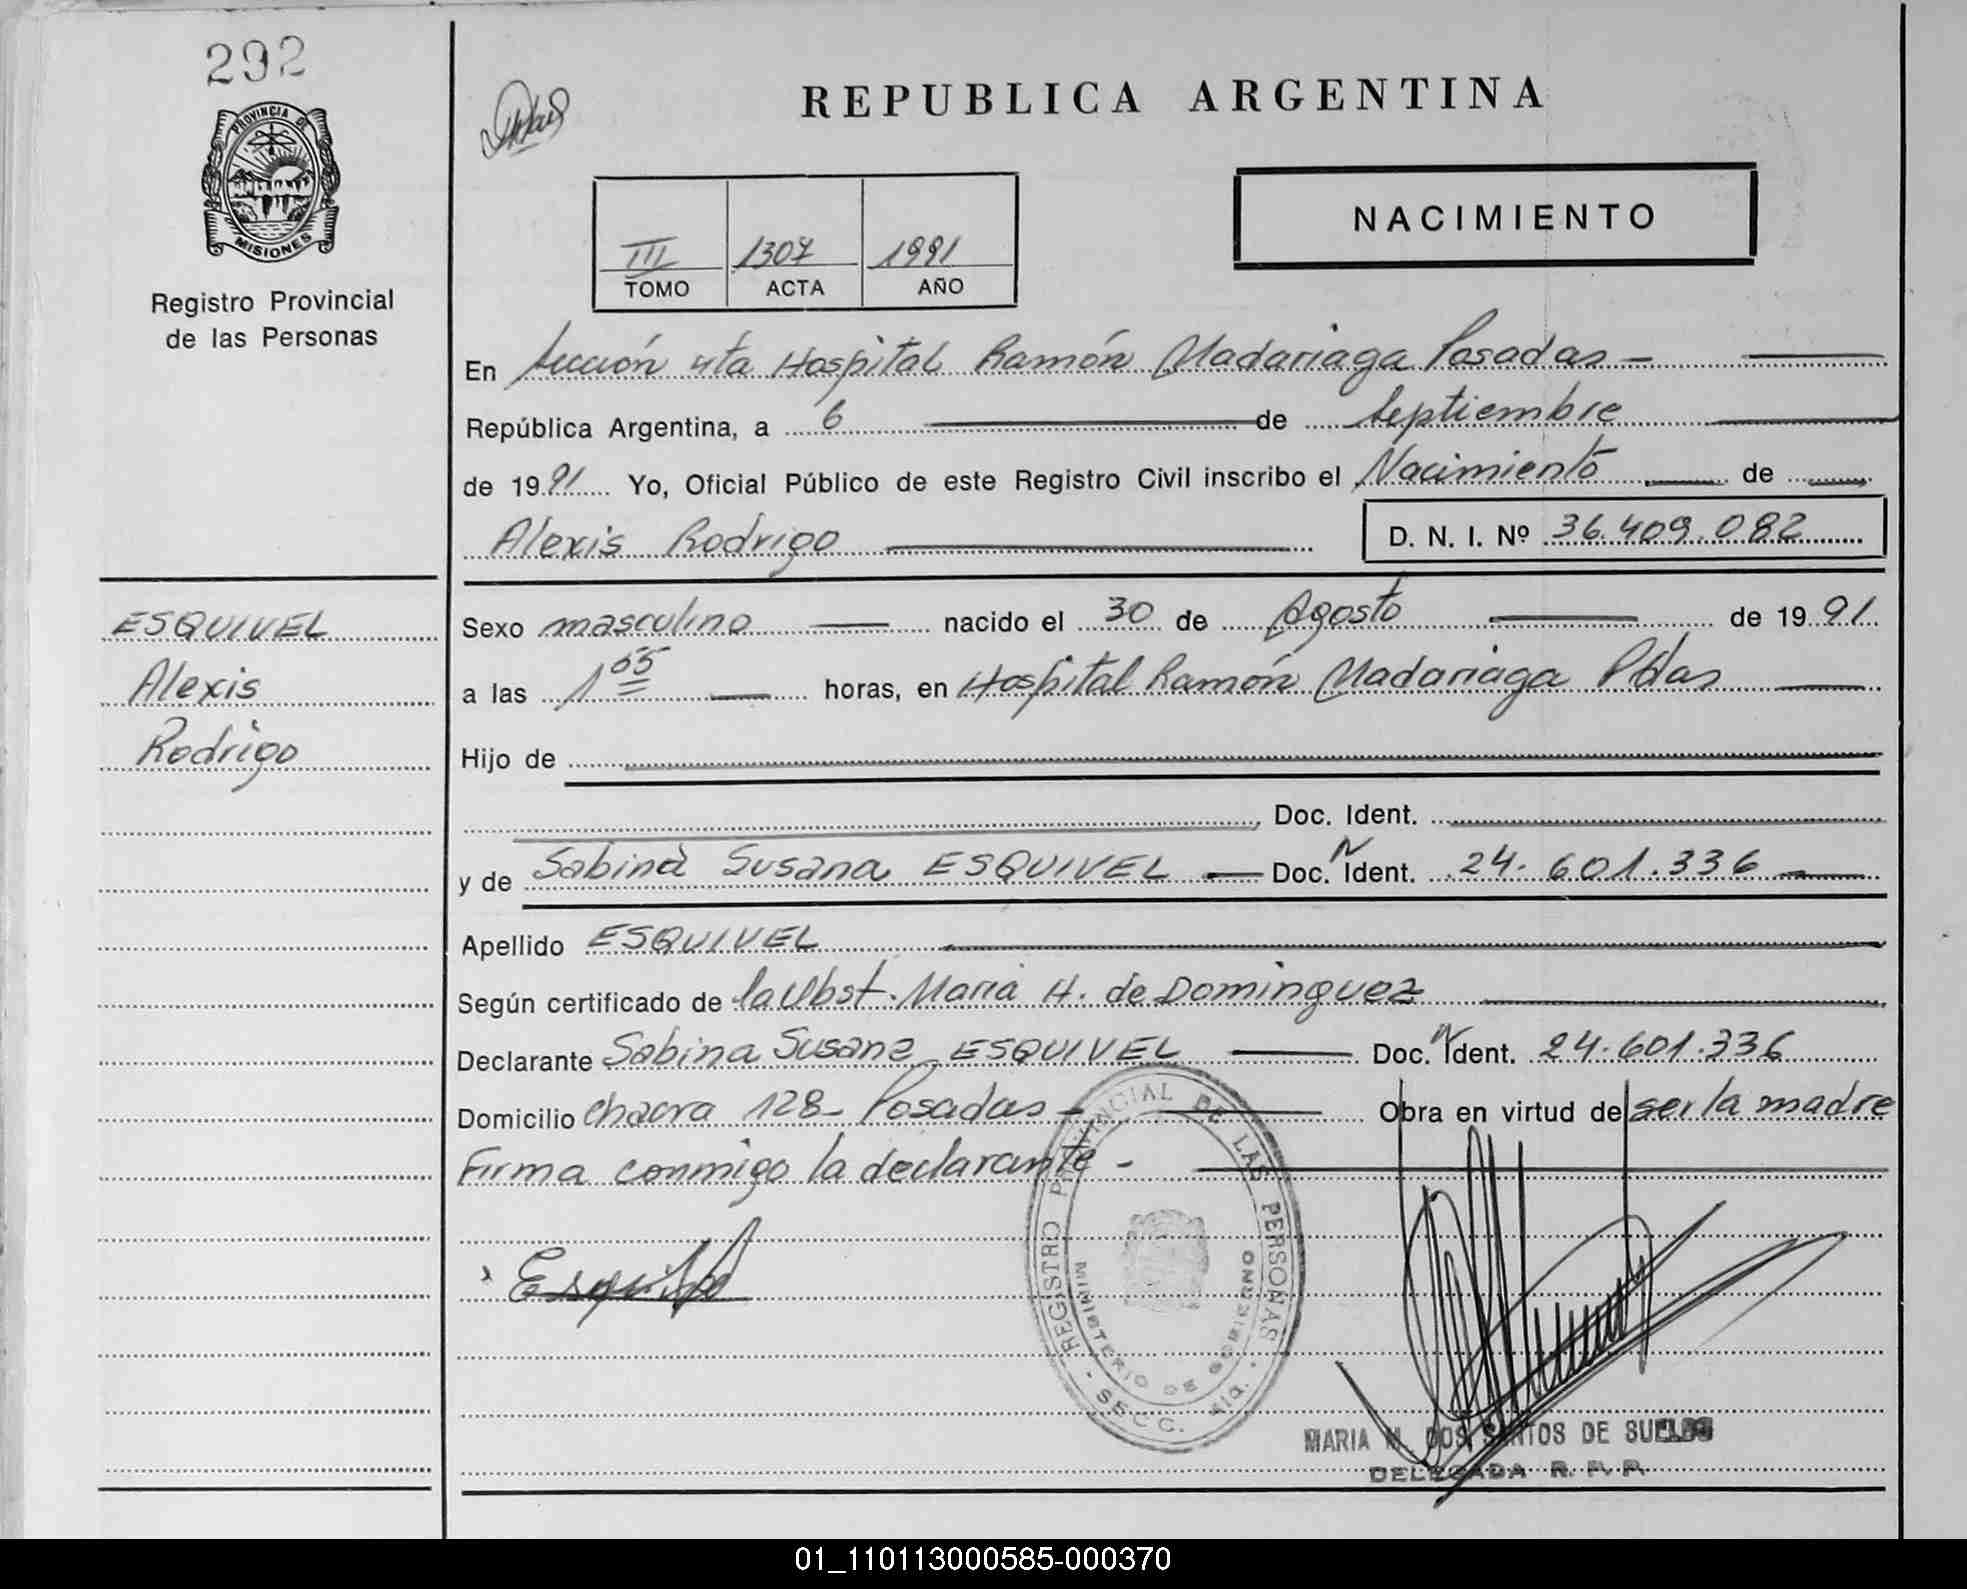 292
PROVINCIA DE
MISIONES
Registro Provincial
de las Personas
REPUBLICA ARGENTINA
III 1307 1991
TOMO ACTA AÑO
NACIMIENTO
En Sección 4ta Hospital Ramón Madariaga Posadas -
República Argentina, a 6 de Septiembre
de 1991 Yo, Oficial Público de este Registro Civil inscribo el Nacimiento de
Alexis Rodrigo D. N. I. Nº 36.409.082
ESQUIVEL
Alexis
Rodrigo
Sexo masculino nacido el 30 de Agosto de 1991
a las 1 55 horas, en Hospital Ramón Madariaga Pdas
Hijo de
Doc. Ident.
y de Sabina Susana ESQUIVEL Doc. N Ident. 24.601.336
Apellido ESQUIVEL
Según certificado de la Obst. Maria H. de Dominguez
Declarante Sabina Susana ESQUIVEL Doc. N Ident. 24.601.336
Domicilio Chacra 128- Posadas - Obra en virtud de ser la madre
Firma conmigo la declarante -
Esquivel
REGISTRO PROVINCIAL DE LAS PERSONAS
MINISTERIO DE GOBIERNO
- SECC. 4ta. -
MARIA M. DOS SANTOS DE
DELEGADA R. P. P.
01_110113000585-000370